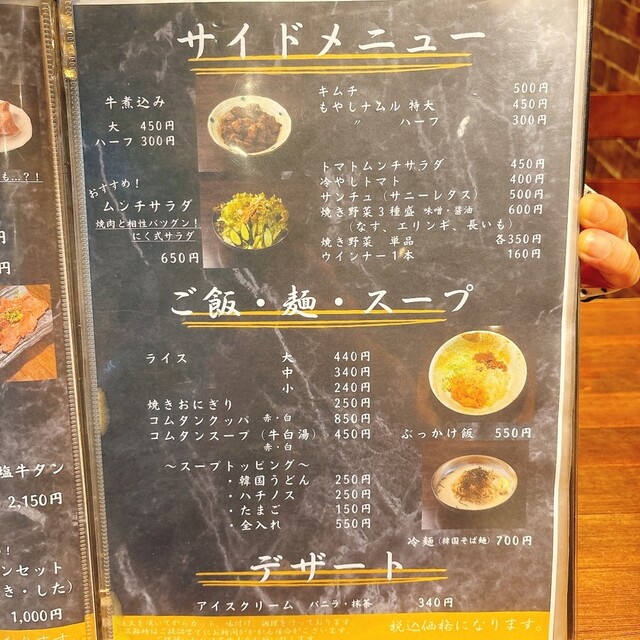 サイドメニュー
牛煮込み
大 450円
ハーフ 300円
キムチ 500円
もやしナムル 特大 450円
〃 ハーフ 300円
おすすめ!
ムンチサラダ
焼肉と相性バツグン!
にく式サラダ
650円
トマトムンチサラダ 450円
冷やしトマト 400円
サンチュ(サニーレタス) 500円
焼き野菜3種盛 味噌・醤油 600円
(なす、エリンギ、長いも)
焼き野菜 単品 各350円
ウインナー1本 160円
ご飯・麺・スープ
ライス 大 440円
中 340円
小 240円
焼きおにぎり 250円
コムタンクッパ 赤・白 850円
コムタンスープ(牛白湯) 450円
赤・白
~スープトッピング~
・韓国うどん 250円
・ハチノス 250円
・たまご 150円
・全入れ 550円
ぶっかけ飯 550円
冷麺(韓国そば麺) 700円
デザート
アイスクリーム バニラ・抹茶 340円
税込価格になります。
も…?!
円
円
塩牛タン
2,150円
!
ンセット
き・した)
1,000円
ます。